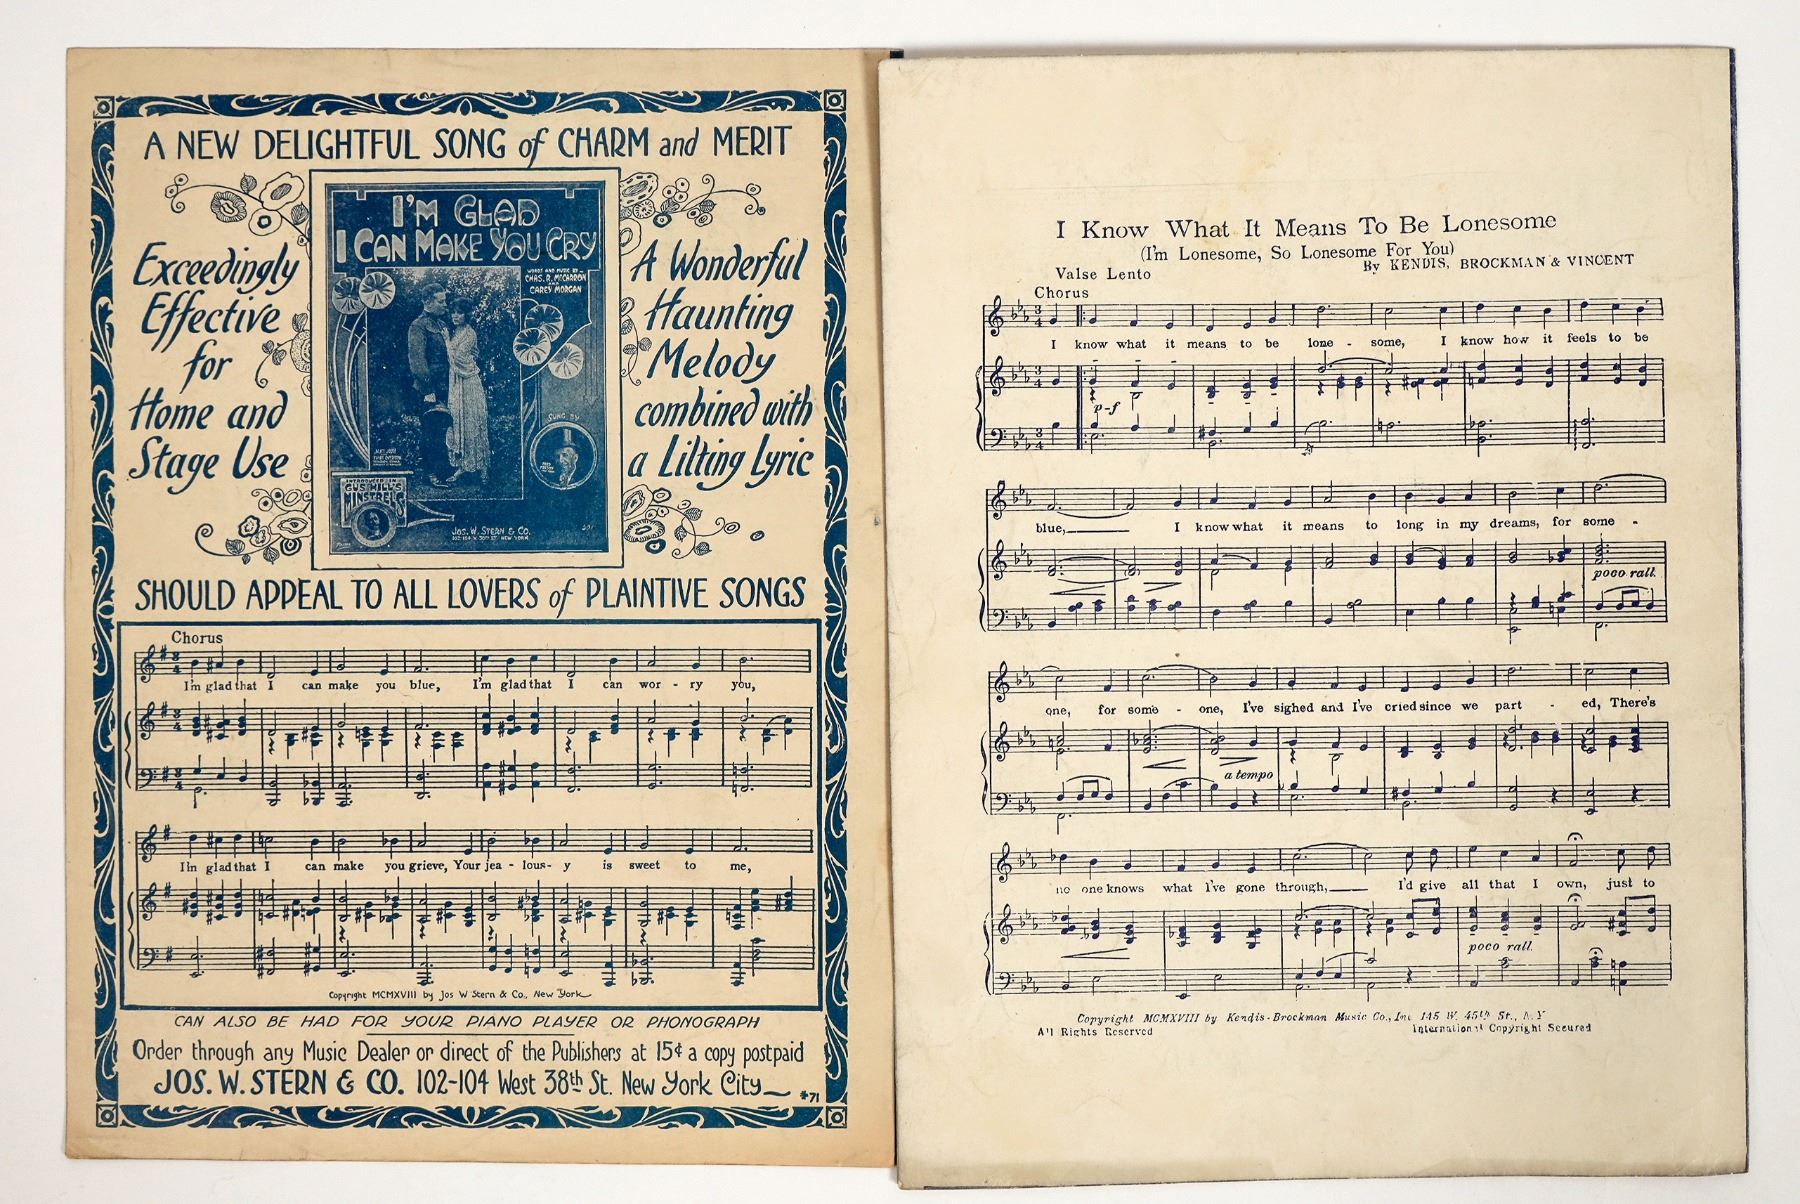 A NEW DELIGHTFUL SONG of CHARM and MERIT
Exceedingly
Effective
for
Home and
Stage Use
I'M GLAD
I CAN MAKE YOU CRY
WORDS AND MUSIC BY
CHAS. R. McCARRON
AND
CAREY MORGAN
SUNG BY
INTRODUCED IN
GUS HILL'S
MINSTRELS
JOS. W. STERN & CO.
102-104 W. 38TH ST. NEW YORK
A Wonderful
Haunting
Melody
combined with
a Lilting Lyric
SHOULD APPEAL TO ALL LOVERS of PLAINTIVE SONGS
Chorus
I'm glad that I can make you blue, I'm glad that I can wor - ry you,
I'm glad that I can make you grieve, Your jea - lous - y is sweet to me,
Copyright MCMXVIII by Jos W Stern & Co., New York
CAN ALSO BE HAD FOR YOUR PIANO PLAYER OR PHONOGRAPH
Order through any Music Dealer or direct of the Publishers at 15¢ a copy postpaid
JOS. W. STERN & CO. 102-104 West 38th St. New York City
#71
I Know What It Means To Be Lonesome
(I'm Lonesome, So Lonesome For You)
By KENDIS, BROCKMAN & VINCENT
Valse Lento
Chorus
I know what it means to be lone - some, I know how it feels to be
p-f
blue, I know what it means to long in my dreams, for some -
poco rall.
one, for some - one, I've sighed and I've cried since we part - ed, There's
a tempo
no one knows what I've gone through, I'd give all that I own, just to
poco rall.
Copyright MCMXVIII by Kendis-Brockman Music Co., Inc 145 W. 45th St., N.Y
All Rights Reserved International Copyright Secured